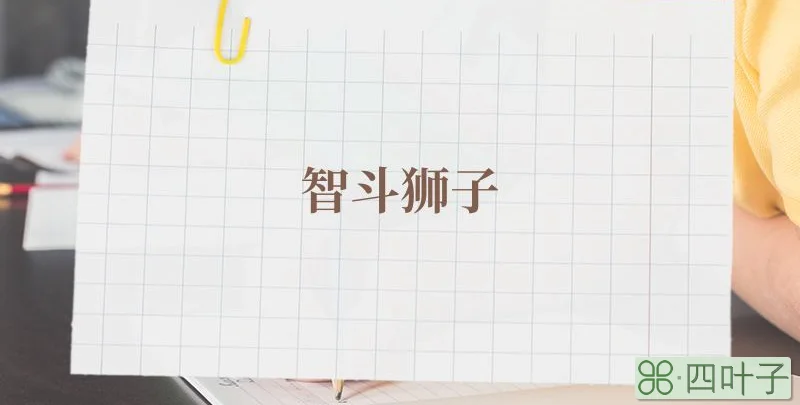 智斗狮子
四叶子